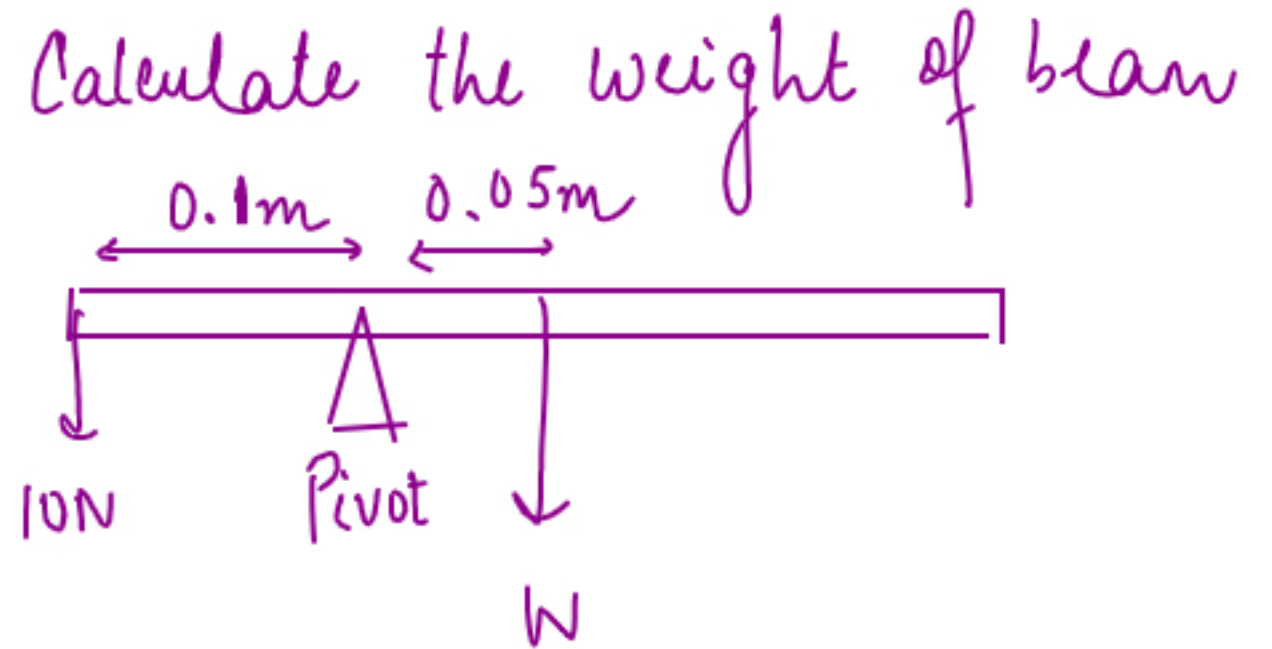 Calculate the weight of beam
0.1m 0.05m
10N Pivot
W